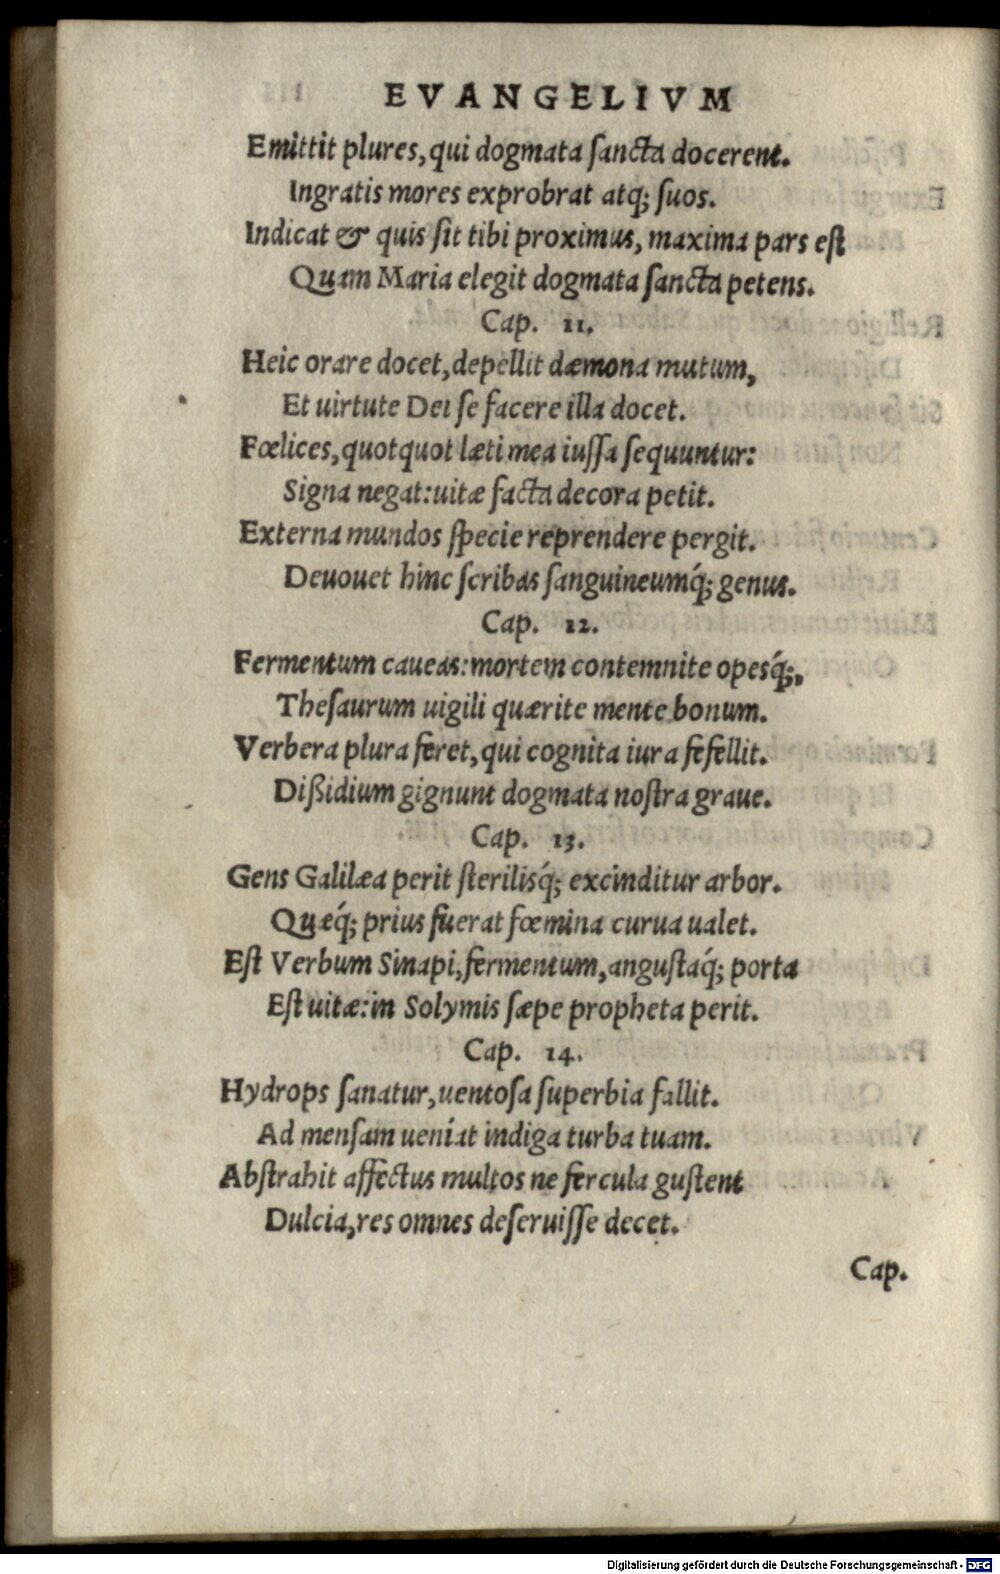 EVANGELIVM
Emittit plures, qui dogmata ſancta docerent.
Ingratis mores exprobrat atq; ſuos.
Indicat & quis ſit tibi proximus, maxima pars eſt
Quam Maria elegit dogmata ſancta petens.
Cap. 11.
Heic orare docet, depellit dæmona mutum,
Et uirtute Dei ſe facere illa docet.
Fœlices, quotquot læti mea iuſſa ſequuntur:
Signa negat: uitæ facta decora petit.
Externa mundos ſpecie reprendere pergit.
Deuouet hinc ſcribas ſanguineumq́; genus.
Cap. 12.
Fermentum caueas: mortem contemnite opesq́;,
Theſaurum uigili quærite mente bonum.
Verbera plura feret, qui cognita iura fefellit.
Dißidium gignunt dogmata noſtra graue.
Cap. 13.
Gens Galilæa perit ſterilisq́; excinditur arbor.
Quæq́; prius fuerat fœmina curua ualet.
Eſt Verbum Sinapi, fermentum, anguſtaq́; porta
Eſt uitæ: in Solymis ſæpe propheta perit.
Cap. 14.
Hydrops ſanatur, uentoſa ſuperbia fallit.
Ad menſam ueniat indiga turba tuam.
Abſtrahit affectus multos ne fercula guſtent
Dulcia, res omnes deſeruiſſe decet.
Cap.
Digitalisierung gefördert durch die Deutsche Forschungsgemeinschaft - DFG